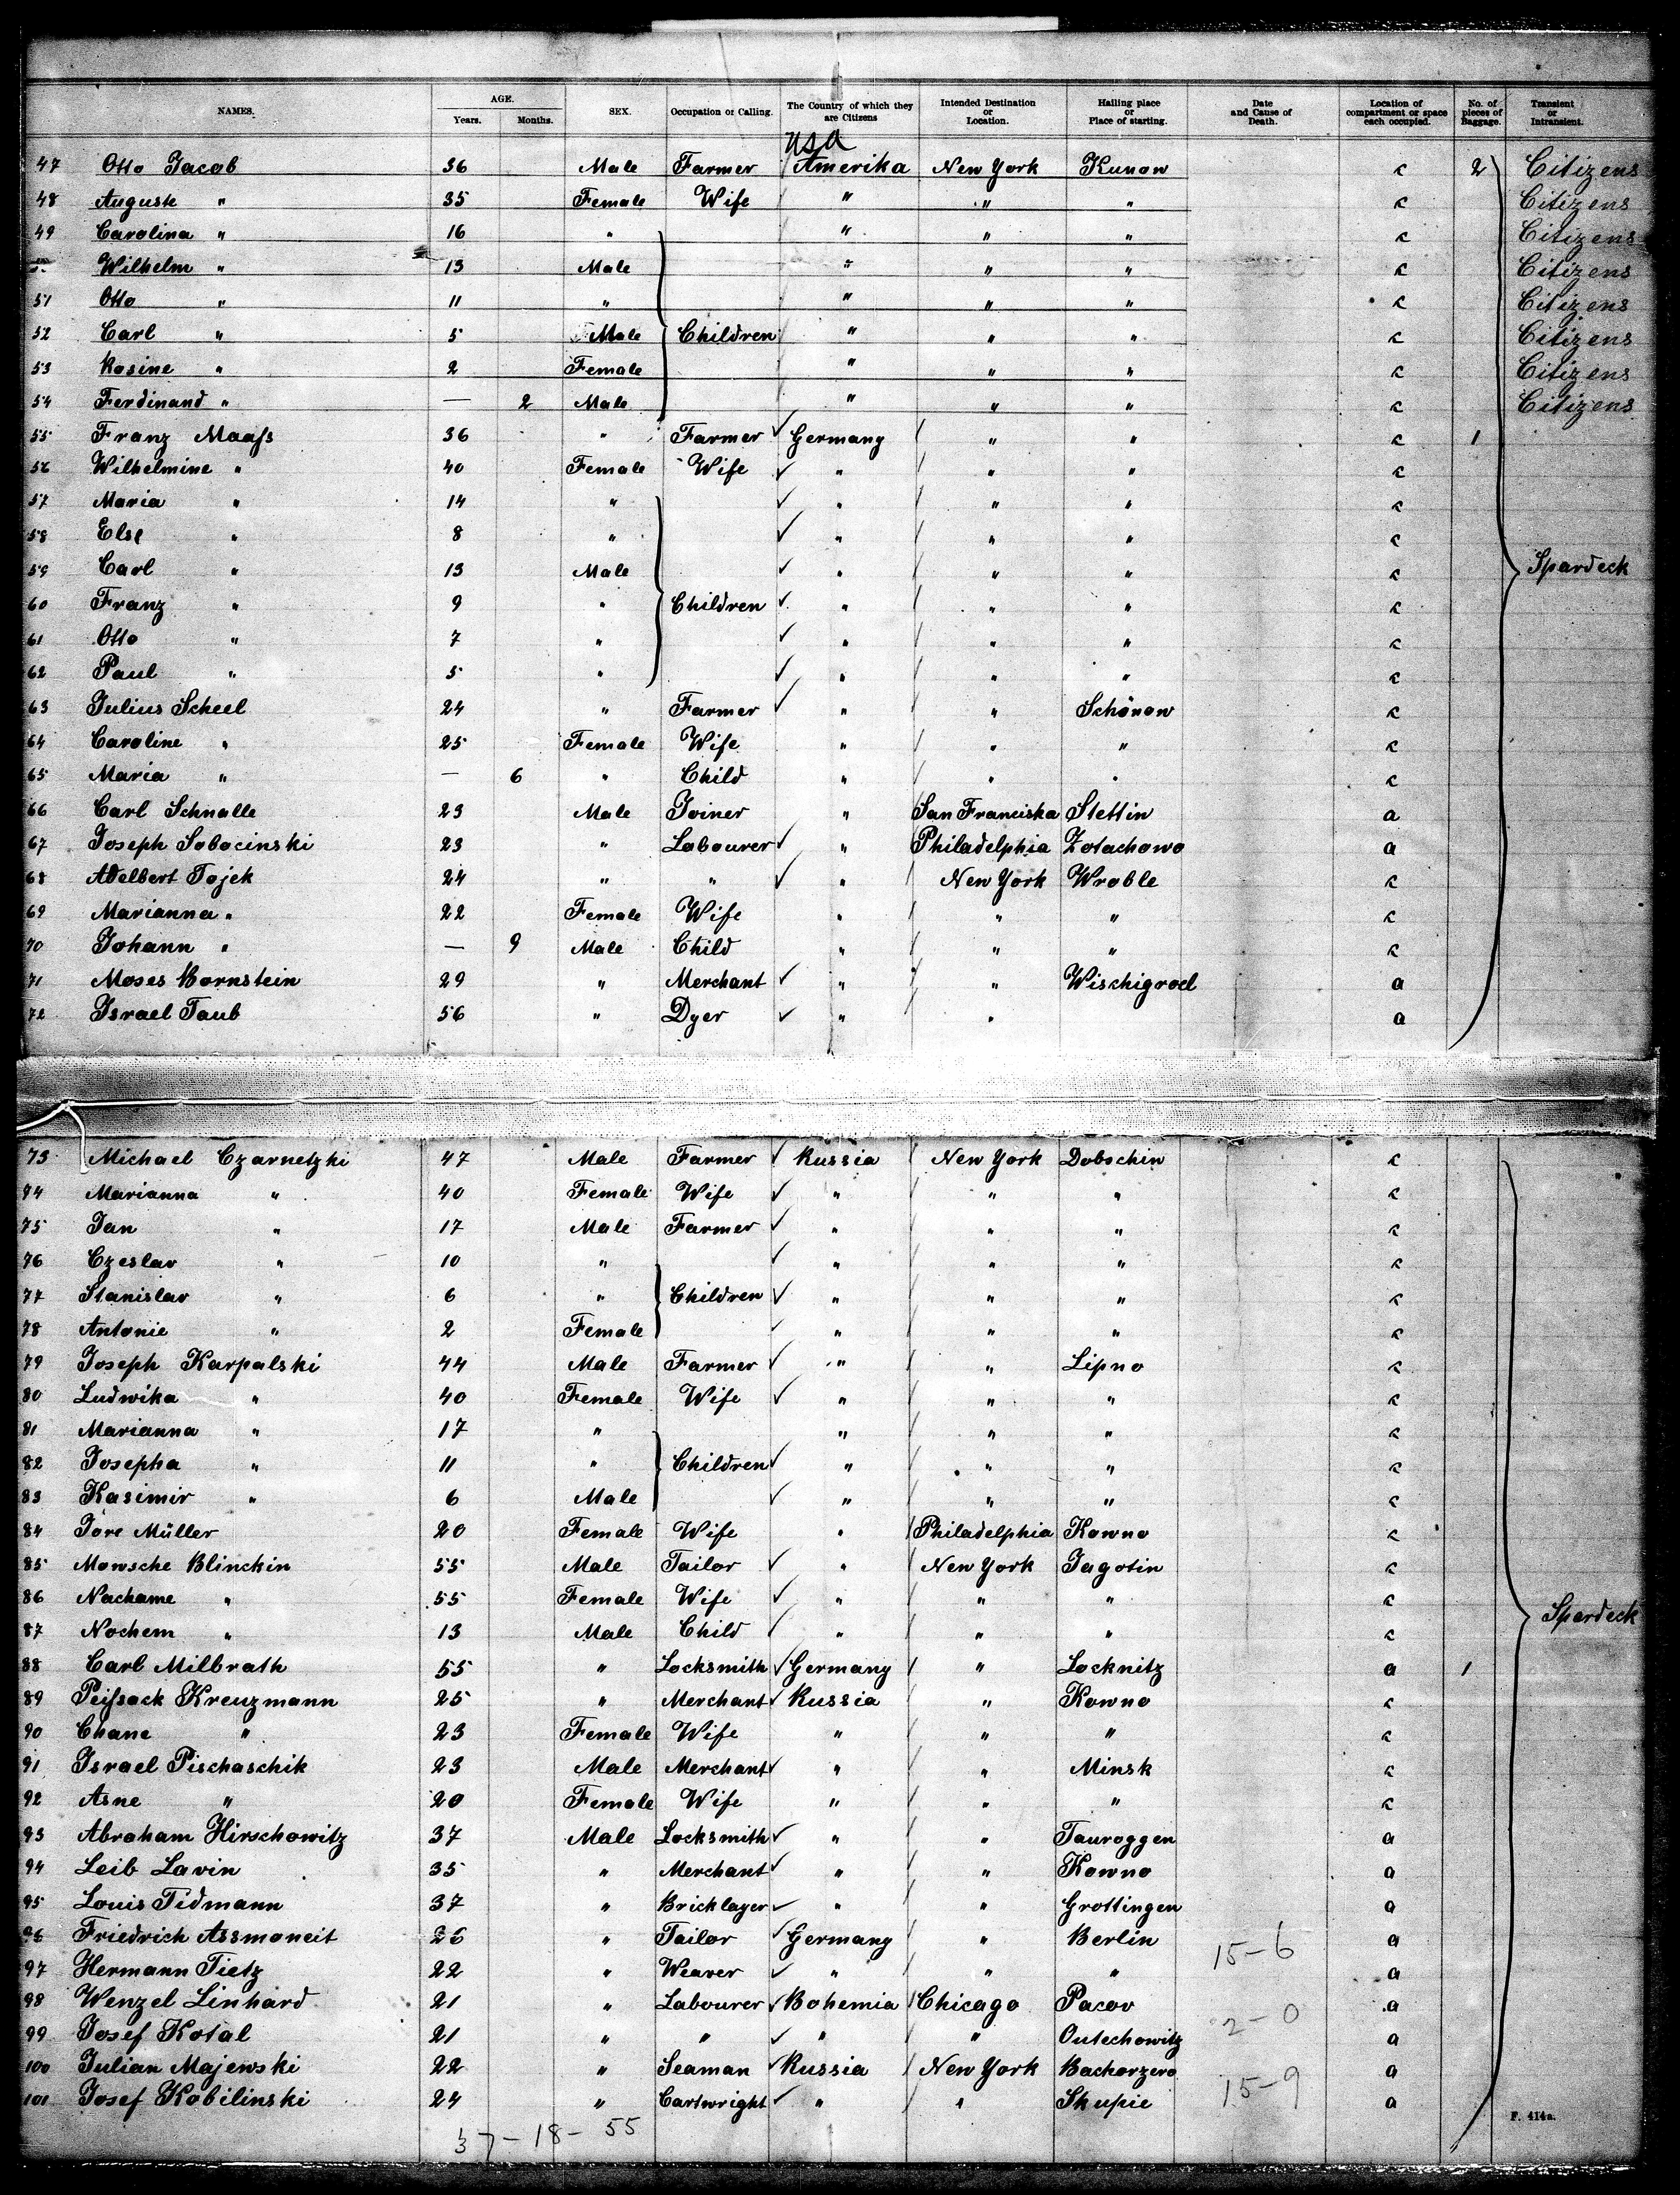 NAMES. AGE. Years. Months. SEX. Occupation or Calling. The Country of which they are Citizens Intended Destination or Location. Hailing place or Place of starting. Date and Cause of Death. Location of compartment or space each occupied. No. of pieces of Baggage. Transient or Intransient.
USA
47 Otto Jacob 36 Male Farmer Amerika New York Kunow c 2 Citizens
48 Auguste " 35 Female Wife " " " c Citizens
49 Carolina " 16 " " " " c Citizens
Wilhelm " 13 Male " " " c Citizens
51 Otto " 11 " " " " c Citizens
52 Carl " 5 Male Children " " " c Citizens
53 Rosine " 2 Female " " " c Citizens
54 Ferdinand " — 2 Male " " " c Citizens
55 Franz Maaſs 36 " Farmer Germany " " c 1
56 Wilhelmine " 40 Female Wife " " " c
57 Maria " 14 " " " " c
58 Else " 8 " " " " c
59 Carl " 13 Male " " " c Spardeck
60 Franz " 9 " Children " " " c
61 Otto " 7 " " " " c
62 Paul " 5 " " " " c
63 Julius Scheel 24 " Farmer " " Schönow c
64 Caroline " 25 Female Wife " " " c
65 Maria " — 6 " Child " " " c
66 Carl Schnalle 23 Male Joiner " San Franciska Stettin a
67 Joseph Sobocinski 23 " Labourer " Philadelphia Zotachowo a
68 Adelbert Tojek 24 " " " New York Wroble c
69 Marianna " 22 Female Wife " " " c
70 Johann " — 9 Male Child " " " c
71 Moses Bornstein 29 " Merchant " " Wischigrod a
72 Israel Taub 56 " Dyer " " a
73 Michael Czarnetzki 47 Male Farmer Russia New York Dobschin c
74 Marianna " 40 Female Wife " " " c
75 Jan " 17 Male Farmer " " " c
76 Czeslav " 10 " " " " c
77 Stanislav " 6 " Children " " " c
78 Antonie " 2 Female " " " c
79 Joseph Karpalski 44 Male Farmer " " Lipno c
80 Ludwika " 40 Female Wife " " " c
81 Marianna " 17 " " " " c
82 Josepha " 11 " Children " " " c
83 Kasimir " 6 Male " " " c
84 Jore Müller 20 Female Wife " Philadelphia Kowno c
85 Mowsche Blinckin 55 Male Tailor " New York Jagotin c
86 Nachame " 55 Female Wife " " " c
87 Nochem " 13 Male Child " " " c Spardeck
88 Carl Milbrath 55 " Locksmith Germany " Locknitz a 1
89 Peiſsack Kreuzmann 25 " Merchant Russia " Kowno c
90 Chane " 23 Female Wife " " " c
91 Israel Pischaschik 23 Male Merchant " " Minsk c
92 Asne " 20 Female Wife " " " c
93 Abraham Hirschowitz 37 Male Locksmith " " Tauroggen a
94 Leib Lavin 35 " Merchant " " Kowno a
95 Louis Tidmann 37 " Bricklayer " " Grottingen a
96 Friedrich Assmoneit 26 " Tailor Germany " Berlin 15-6 a
97 Hermann Tietz 22 " Weaver " " " a
98 Wenzel Linhard 21 " Labourer Bohemia Chicago Pacov a
99 Josef Kotal 21 " " " " Outechowitz 2-0 a
100 Julian Majewski 22 " Seaman Russia New York Backorzevo a
101 Josef Kobilinski 24 " Cartwright " " Skupie 15-9 a
F. 414a.
37-18-55